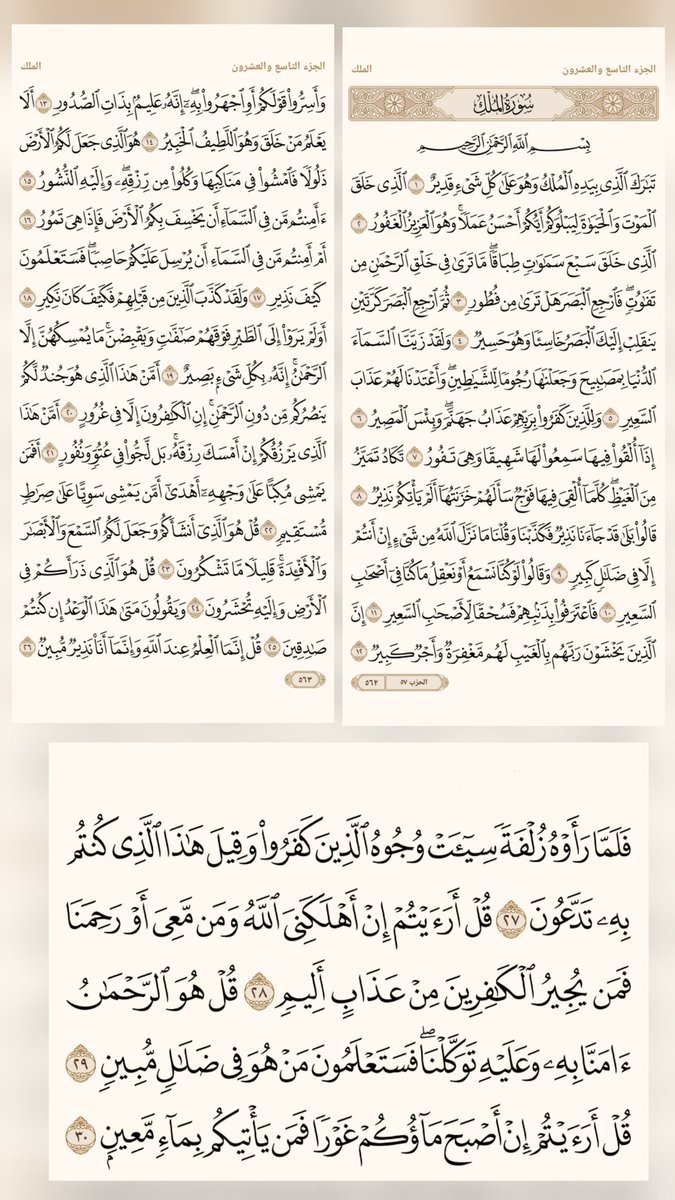 الجزء التاسع والعشرون
الملك
سُورَةُ المُلۡكِ
بِسۡمِ ٱللَّهِ ٱلرَّحۡمَٰنِ ٱلرَّحِيمِ
تَبَٰرَكَ ٱلَّذِي بِيَدِهِ ٱلۡمُلۡكُ وَهُوَ عَلَىٰ كُلِّ شَيۡءٖ قَدِيرٌ ١ ٱلَّذِي خَلَقَ
ٱلۡمَوۡتَ وَٱلۡحَيَوٰةَ لِيَبۡلُوَكُمۡ أَيُّكُمۡ أَحۡسَنُ عَمَلٗاۚ وَهُوَ ٱلۡعَزِيزُ ٱلۡغَفُورُ ٢
ٱلَّذِي خَلَقَ سَبۡعَ سَمَٰوَٰتٖ طِبَاقٗاۖ مَّا تَرَىٰ فِي خَلۡقِ ٱلرَّحۡمَٰنِ مِن
تَفَٰوُتٖۖ فَٱرۡجِعِ ٱلۡبَصَرَ هَلۡ تَرَىٰ مِن فُطُورٖ ٣ ثُمَّ ٱرۡجِعِ ٱلۡبَصَرَ كَرَّتَيۡنِ
يَنقَلِبۡ إِلَيۡكَ ٱلۡبَصَرُ خَاسِئٗا وَهُوَ حَسِيرٞ ٤ وَلَقَدۡ زَيَّنَّا ٱلسَّمَآءَ
ٱلدُّنۡيَا بِمَصَٰبِيحَ وَجَعَلۡنَٰهَا رُجُومٗا لِّلشَّيَٰطِينِۖ وَأَعۡتَدۡنَا لَهُمۡ عَذَابَ
ٱلسَّعِيرِ ٥ وَلِلَّذِينَ كَفَرُواْ بِرَبِّهِمۡ عَذَابُ جَهَنَّمَۖ وَبِئۡسَ ٱلۡمَصِيرُ ٦
إِذَآ أُلۡقُواْ فِيهَا سَمِعُواْ لَهَا شَهِيقٗا وَهِيَ تَفُورُ ٧ تَكَادُ تَمَيَّزُ
مِنَ ٱلۡغَيۡظِۖ كُلَّمَآ أُلۡقِيَ فِيهَا فَوۡجٞ سَأَلَهُمۡ خَزَنَتُهَآ أَلَمۡ يَأۡتِكُمۡ نَذِيرٞ ٨
قَالُواْ بَلَىٰ قَدۡ جَآءَنَا نَذِيرٞ فَكَذَّبۡنَا وَقُلۡنَا مَا نَزَّلَ ٱللَّهُ مِن شَيۡءٍ إِنۡ أَنتُمۡ
إِلَّا فِي ضَلَٰلٖ كَبِيرٖ ٩ وَقَالُواْ لَوۡ كُنَّا نَسۡمَعُ أَوۡ نَعۡقِلُ مَا كُنَّا فِيٓ أَصۡحَٰبِ
ٱلسَّعِيرِ ١٠ فَٱعۡتَرَفُواْ بِذَنۢبِهِمۡ فَسُحۡقٗا لِّأَصۡحَٰبِ ٱلسَّعِيرِ ١١ إِنَّ
ٱلَّذِينَ يَخۡشَوۡنَ رَبَّهُم بِٱلۡغَيۡبِ لَهُم مَّغۡفِرَةٞ وَأَجۡرٞ كَبِيرٞ ١٢
الحزب ٥٧
٥٦٢
الجزء التاسع والعشرون
الملك
وَأَسِرُّواْ قَوۡلَكُمۡ أَوِ ٱجۡهَرُواْ بِهِۦٓۖ إِنَّهُۥ عَلِيمُۢ بِذَاتِ ٱلصُّدُورِ ١٣ أَلَا
يَعۡلَمُ مَنۡ خَلَقَ وَهُوَ ٱللَّطِيفُ ٱلۡخَبِيرُ ١٤ هُوَ ٱلَّذِي جَعَلَ لَكُمُ ٱلۡأَرۡضَ
ذَلُولٗا فَٱمۡشُواْ فِي مَنَاكِبِهَا وَكُلُواْ مِن رِّزۡقِهِۦۖ وَإِلَيۡهِ ٱلنُّشُورُ ١٥
ءَأَمِنتُم مَّن فِي ٱلسَّمَآءِ أَن يَخۡسِفَ بِكُمُ ٱلۡأَرۡضَ فَإِذَا هِيَ تَمُورُ ١٦
أَمۡ أَمِنتُم مَّن فِي ٱلسَّمَآءِ أَن يُرۡسِلَ عَلَيۡكُمۡ حَاصِبٗاۖ فَسَتَعۡلَمُونَ
كَيۡفَ نَذِيرِ ١٧ وَلَقَدۡ كَذَّبَ ٱلَّذِينَ مِن قَبۡلِهِمۡ فَكَيۡفَ كَانَ نَكِيرِ ١٨
أَوَلَمۡ يَرَوۡاْ إِلَى ٱلطَّيۡرِ فَوۡقَهُمۡ صَٰٓفَّٰتٖ وَيَقۡبِضۡنَۚ مَا يُمۡسِكُهُنَّ إِلَّا
ٱلرَّحۡمَٰنُۚ إِنَّهُۥ بِكُلِّ شَيۡءِۭ بَصِيرٌ ١٩ أَمَّنۡ هَٰذَا ٱلَّذِي هُوَ جُندٞ لَّكُمۡ
يَنصُرُكُم مِّن دُونِ ٱلرَّحۡمَٰنِۚ إِنِ ٱلۡكَٰفِرُونَ إِلَّا فِي غُرُورٍ ٢٠ أَمَّنۡ هَٰذَا
ٱلَّذِي يَرۡزُقُكُمۡ إِنۡ أَمۡسَكَ رِزۡقَهُۥۚ بَل لَّجُّواْ فِي عُتُوّٖ وَنُفُورٍ ٢١ أَفَمَن
يَمۡشِي مُكِبًّا عَلَىٰ وَجۡهِهِۦٓ أَهۡدَىٰٓ أَمَّن يَمۡشِي سَوِيًّا عَلَىٰ صِرَٰطٖ
مُّسۡتَقِيمٖ ٢٢ قُلۡ هُوَ ٱلَّذِيٓ أَنشَأَكُمۡ وَجَعَلَ لَكُمُ ٱلسَّمۡعَ وَٱلۡأَبۡصَٰرَ
وَٱلۡأَفۡـِٔدَةَۚ قَلِيلٗا مَّا تَشۡكُرُونَ ٢٣ قُلۡ هُوَ ٱلَّذِي ذَرَأَكُمۡ فِي
ٱلۡأَرۡضِ وَإِلَيۡهِ تُحۡشَرُونَ ٢٤ وَيَقُولُونَ مَتَىٰ هَٰذَا ٱلۡوَعۡدُ إِن كُنتُمۡ
صَٰدِقِينَ ٢٥ قُلۡ إِنَّمَا ٱلۡعِلۡمُ عِندَ ٱللَّهِ وَإِنَّمَآ أَنَا۠ نَذِيرٞ مُّبِينٞ ٢٦
٥٦٣
فَلَمَّا رَأَوۡهُ زُلۡفَةٗ سِيٓـَٔتۡ وُجُوهُ ٱلَّذِينَ كَفَرُواْ وَقِيلَ هَٰذَا ٱلَّذِي كُنتُم
بِهِۦ تَدَّعُونَ ٢٧ قُلۡ أَرَءَيۡتُمۡ إِنۡ أَهۡلَكَنِيَ ٱللَّهُ وَمَن مَّعِيَ أَوۡ رَحِمَنَا
فَمَن يُجِيرُ ٱلۡكَٰفِرِينَ مِنۡ عَذَابٍ أَلِيمٖ ٢٨ قُلۡ هُوَ ٱلرَّحۡمَٰنُ
ءَامَنَّا بِهِۦ وَعَلَيۡهِ تَوَكَّلۡنَاۖ فَسَتَعۡلَمُونَ مَنۡ هُوَ فِي ضَلَٰلٖ مُّبِينٖ ٢٩
قُلۡ أَرَءَيۡتُمۡ إِنۡ أَصۡبَحَ مَآؤُكُمۡ غَوۡرٗا فَمَن يَأۡتِيكُم بِمَآءٖ مَّعِينِۭ ٣٠